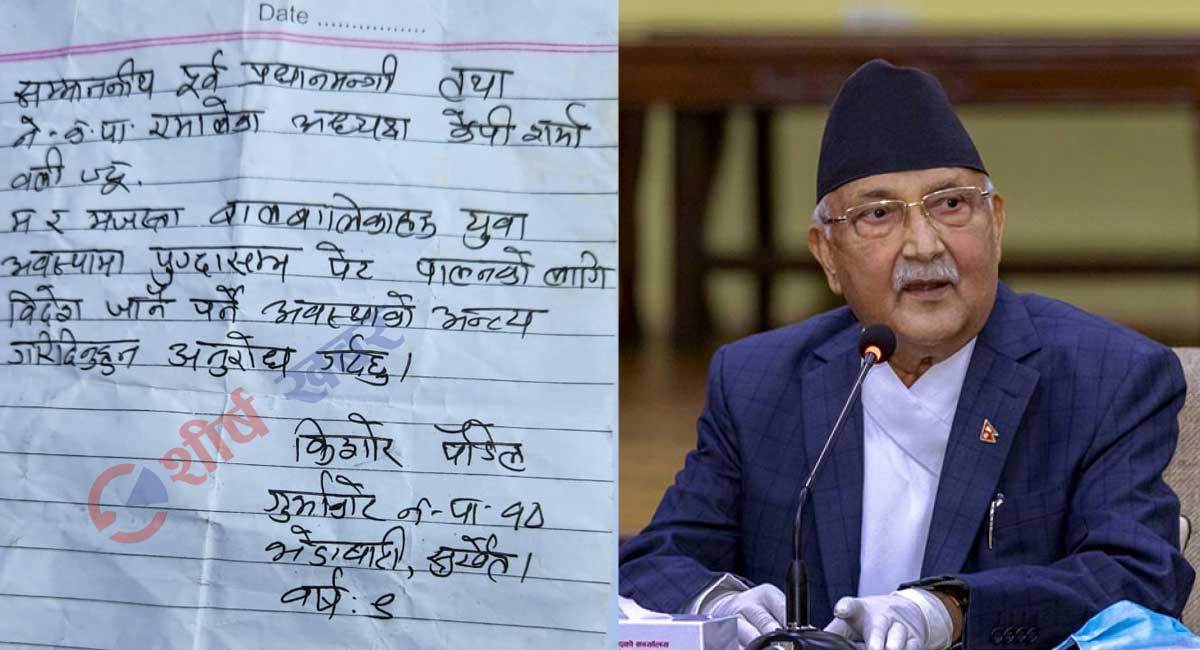 Date ................
सम्माननीय पूर्व प्रधानमन्त्री तथा
ने.क.पा. एमालेका अध्यक्ष केपी शर्मा
वली ज्यू.
म र मजस्ता बालबालिकाहरु युवा
अवस्थामा पुग्दासम्म पेट पालनको लागि
विदेश जानै पर्ने अवस्थाको अन्त्य
गरिदिनुहुन अनुरोध गर्दछु।
शीर्ष खबर
किशोर पौडेल
गुर्भाकोट न.पा. १०
भेडाबारी, सुर्खेत।
वर्ष: ९